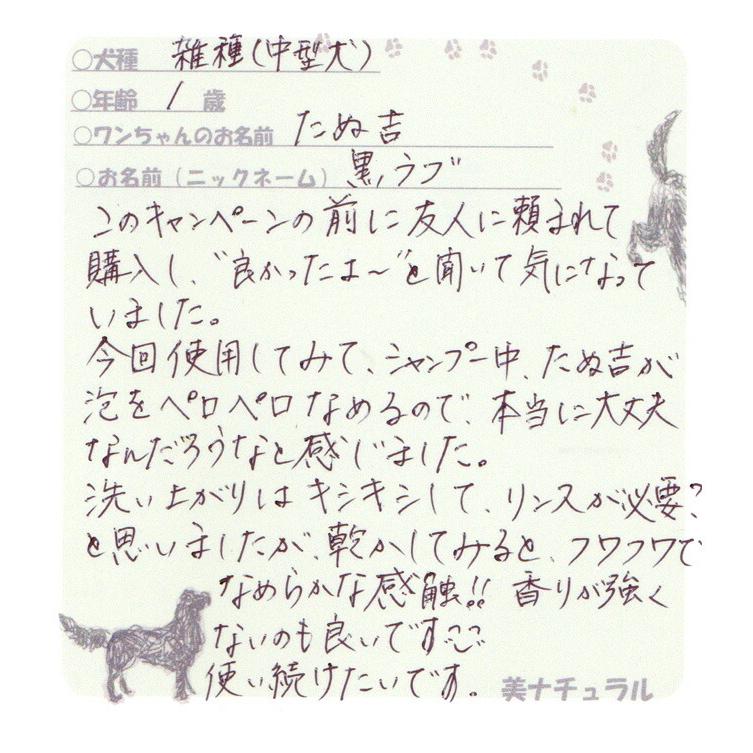 ○犬種 雑種(中型犬)
○年齢 1 歳
○ワンちゃんのお名前 たぬ吉
○お名前(ニックネーム) 黒ラブ
このキャンペーンの前に友人に頼まれて
購入し、"良かったよ〜"と聞いて気になって
いました。
今回使用してみて、シャンプー中、たぬ吉が
泡をペロペロなめるので、本当に大丈夫
なんだろうなと感じました。
洗い上がりはキシキシして、リンスが必要?
と思いましたが、乾かしてみると、フワフワで
なめらかな感触!! 香りが強く
ないのも良いです
使い続けたいです。
美ナチュラル